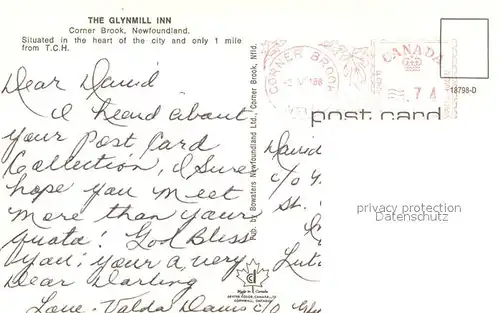 THE GLYNMILL INN
Corner Brook, Newfoundland.
Situated in the heart of the city and only 1 mile
from T.C.H.
Dear David
I heard about
your Post Card
Collection, I sure
hope you meet
more than your
quota! God Bless
you; your a very
Dear Darling
Love. Valda Davis c/o
Pub. by Bowaters Newfoundland Ltd., Corner Brook, Nfld.
CORNER BROOK
CANADA
74
18798-D
post card
David
c/o
St.
privacy protection
Datenschutz
Made in Canada